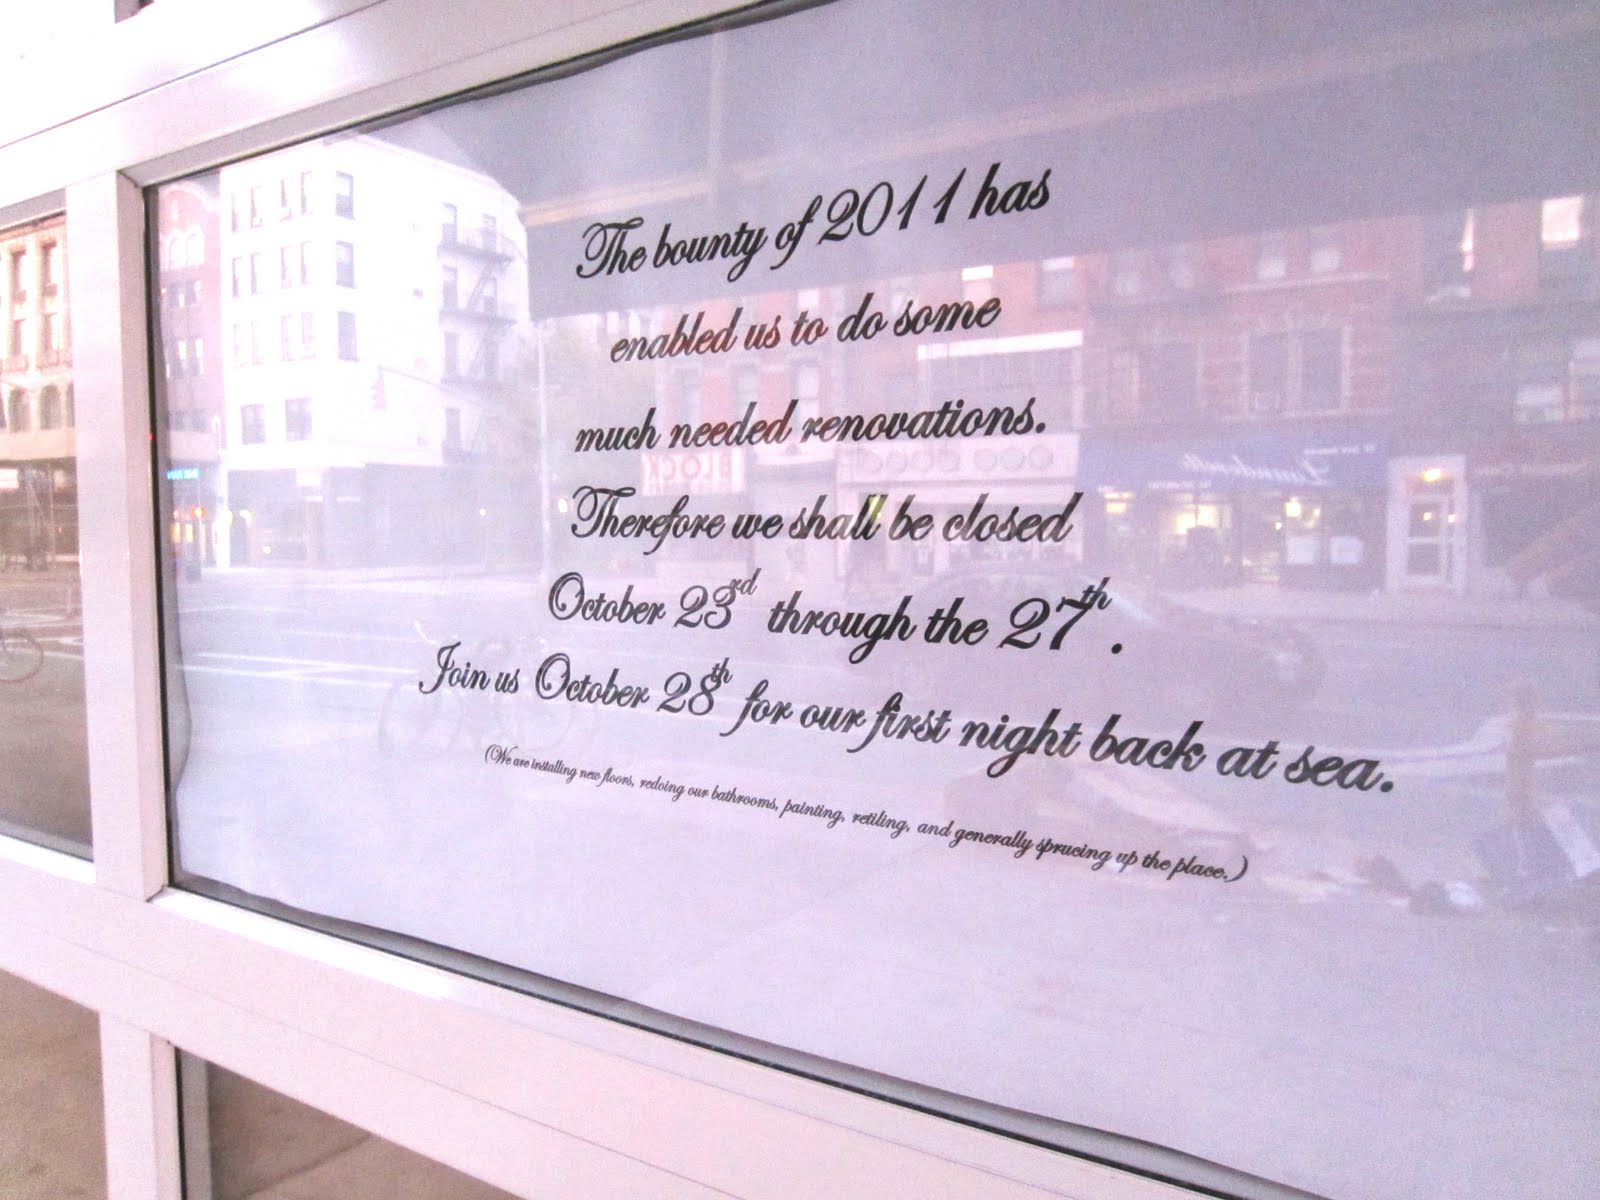 The bounty of 2011 has
enabled us to do some
much needed renovations.
Therefore we shall be closed
October 23rd through the 27th.
Join us October 28th for our first night back at sea.
(We are installing new floors, redoing our bathrooms, painting, retiling, and generally sprucing up the place.)
BLOCK